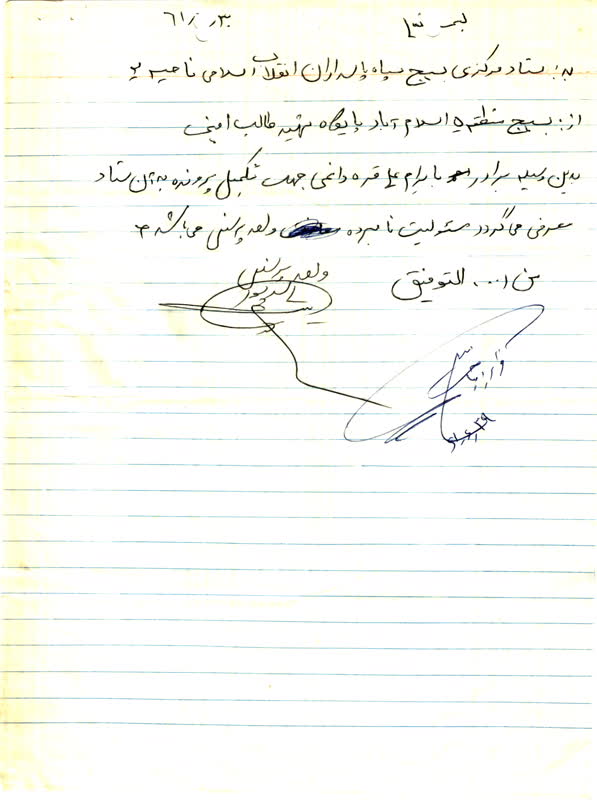 بسمه تعالی ۶۱/
به: ستاد مرکزی بسیج سپاه پاسداران انقلاب اسلامی ناحیه ۲
از: بسیج منطقه ۵ اسلام آباد پایگاه شهید طالب امینی
بدین وسیله برادر بایرام علی قره داغی جهت تکمیل پرونده به آن ستاد
معرفی می گردد مسئولیت نامبرده واحد پرسنلی می باشد
من ا... التوفیق
واحد پرسنلی